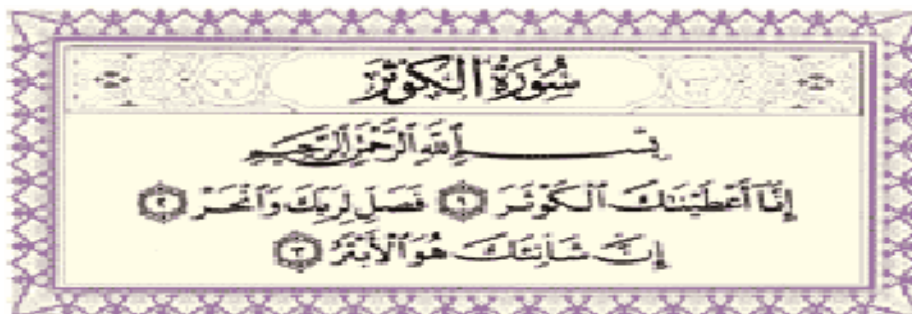 سُورَةُ الْكَوْثَرَ
بِسْمِ اللَّهِ الرَّحْمَٰنِ الرَّحِيمِ
إِنَّا أَعْطَيْنَاكَ الْكَوْثَرَ ١ فَصَلِّ لِرَبِّكَ وَانْحَرْ ٢
إِنَّ شَانِئَكَ هُوَ الْأَبْتَرُ ٣